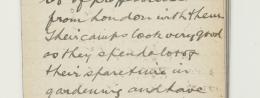 from London with them
Their camps look very good
as they spend a lot of
their spare time in
gardening and have